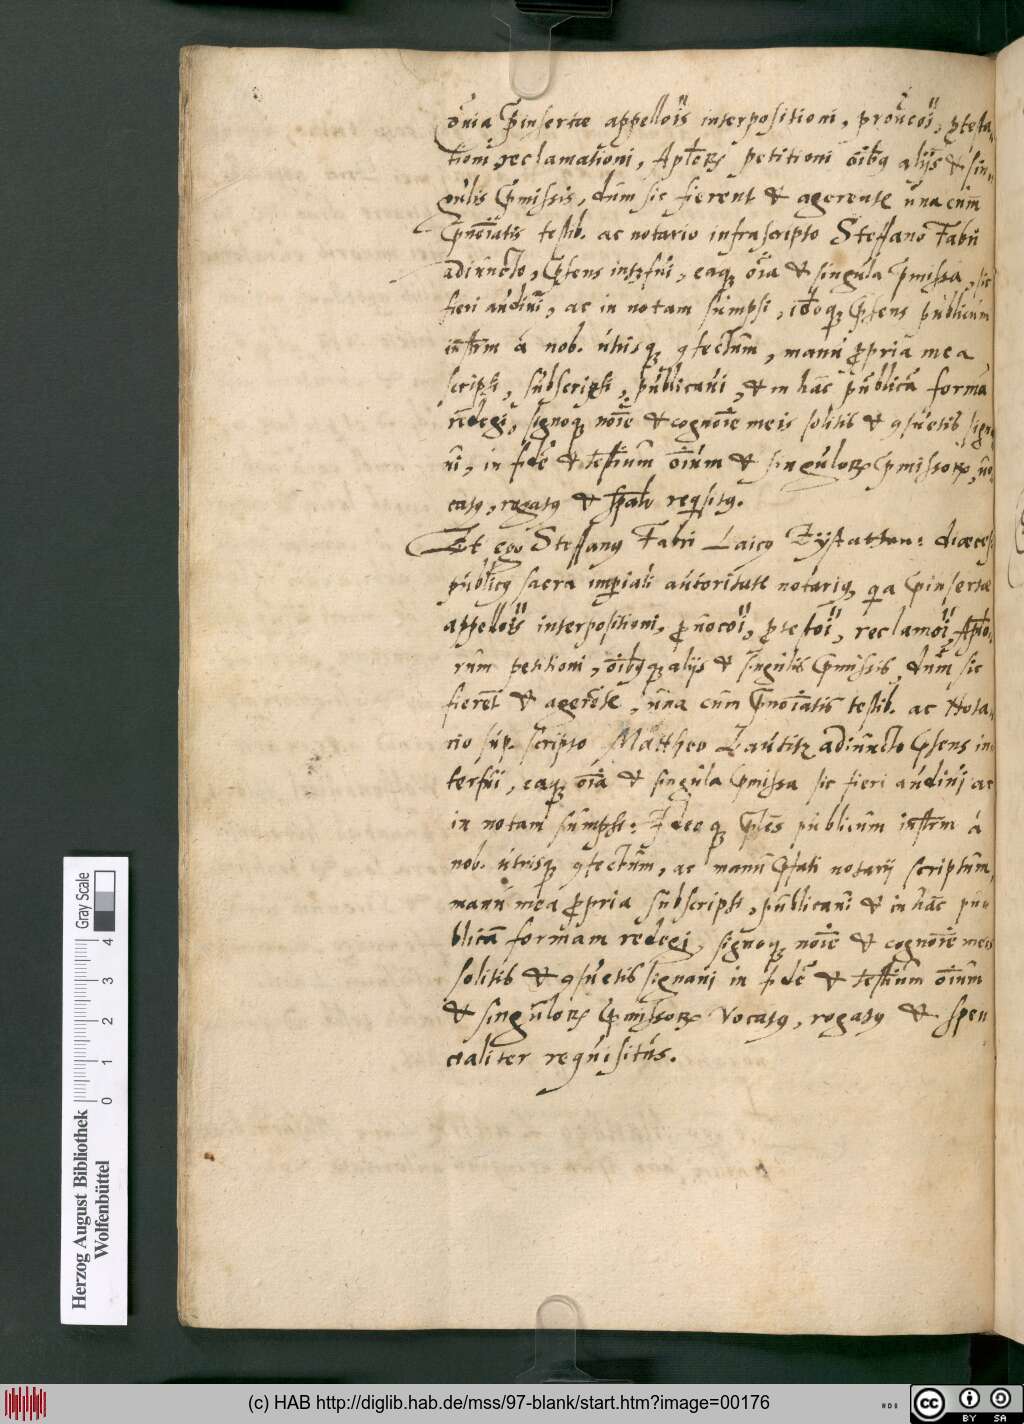 oīnia p̄insertæ appellōis interpositioni, prouōcōi, ptesta-
tioni, reclamationi, Aplōrꝝ petitioni oībꝰ alijs & sin-
gulis p̄missis, dum sic fierent & agerentur vna cum
p̄nōīatis testib. ac notario infrascripto Steffano Fabri
adiuncto, p̄sens intrfui, eaqꝫ oīa & singula p̄missa, sic
fieri audiui, ac in notam sumpsi, idēoqꝫ p̄sens publicum
instrm̄ a nob. utrisqꝫ ꝯfectum, manu ꝓpria mea
scripsi, subscripsi, publicaui, & in hāc publicā formā
redegi, signoqꝫ noīe & cognoīe meis solitis & ꝯsuetis signa-
ui, in fidē & testium oīum & singulorꝝ p̄missorꝝ, uo-
catꝰ, rogatꝰ & sp̄alr reqsitꝰ.
Et ego Steffanꝰ Fabri Laicꝰ Eystatten: diœces:
publicꝰ sacra imperiali autoritate notariꝰ, qa p̄insertæ
appellōis interpositioni, ꝓuocōi, ptestōi, reclamōi, Aplō-
rum petitioni, oībꝰqꝫ alijs & singulis p̄missis, dum sic
fierēt & agerētur, una cum p̄noīatis testib. ac Nota-
rio sup. scripto Mattheo Lautitz adiuncto p̄sens in-
terfui, eaqꝫ oīa & singula p̄missa sic fieri audiui ac
in notam sumpsi: Ideoqꝫ p̄ns publicum instrm̄ a
nob. utrisqꝫ ꝯfectum, ac manu p̄fati notarij scriptum,
manu mea ꝓpria subscripsi, publicaui & in hāc pu-
blicā formam redegi, signoqꝫ noīe & cognoīe meis
solitis & ꝯsuetis signaui in fidē & testium oīum
& singulorꝝ p̄missorꝝ vocatꝰ, rogatꝰ & spe-
cialiter requisitus.
Herzog August Bibliothek
Wolfenbüttel
0 1 2 3 4
Gray Scale
(c) HAB http://diglib.hab.de/mss/97-blank/start.htm?image=00176
cc BY SA